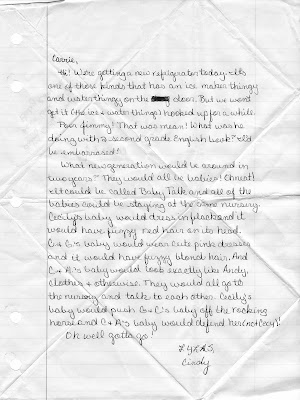 Carrie,
Hi! We're getting a new refrigerator today. It's
one of those kinds that has an ice maker thingy
and water thingy on the door. But we won't
get it (the ice & water things) hooked up for a while.
Poor Jimmy! That was mean! What was he
doing with a second grade English book? I'd
be embarrassed!
What new generation would be around in
two years? They would all be babies!
It could be called Baby Talk and all of the
babies could be staying at the same nursery.
Cecily's baby would dress in black and it
would have fuzzy red hair on its head.
C & G's baby would wear cute pink dresses
and it would have fuzzy blond hair. And
C & A's baby would look exactly like Andy,
clothes & otherwise. They would all go to
the nursery and talk to each other. Cecily's
baby would push C & G's baby off the rocking
horse and C & A's baby would defend her (not Cecily)!
Oh well gotta go!
Cindy